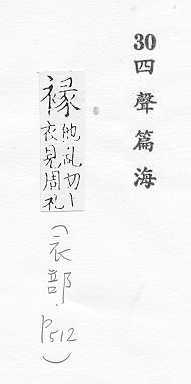 30四聲篇海
褖
他乱切〡
衣見周礼
(衣部 P512)